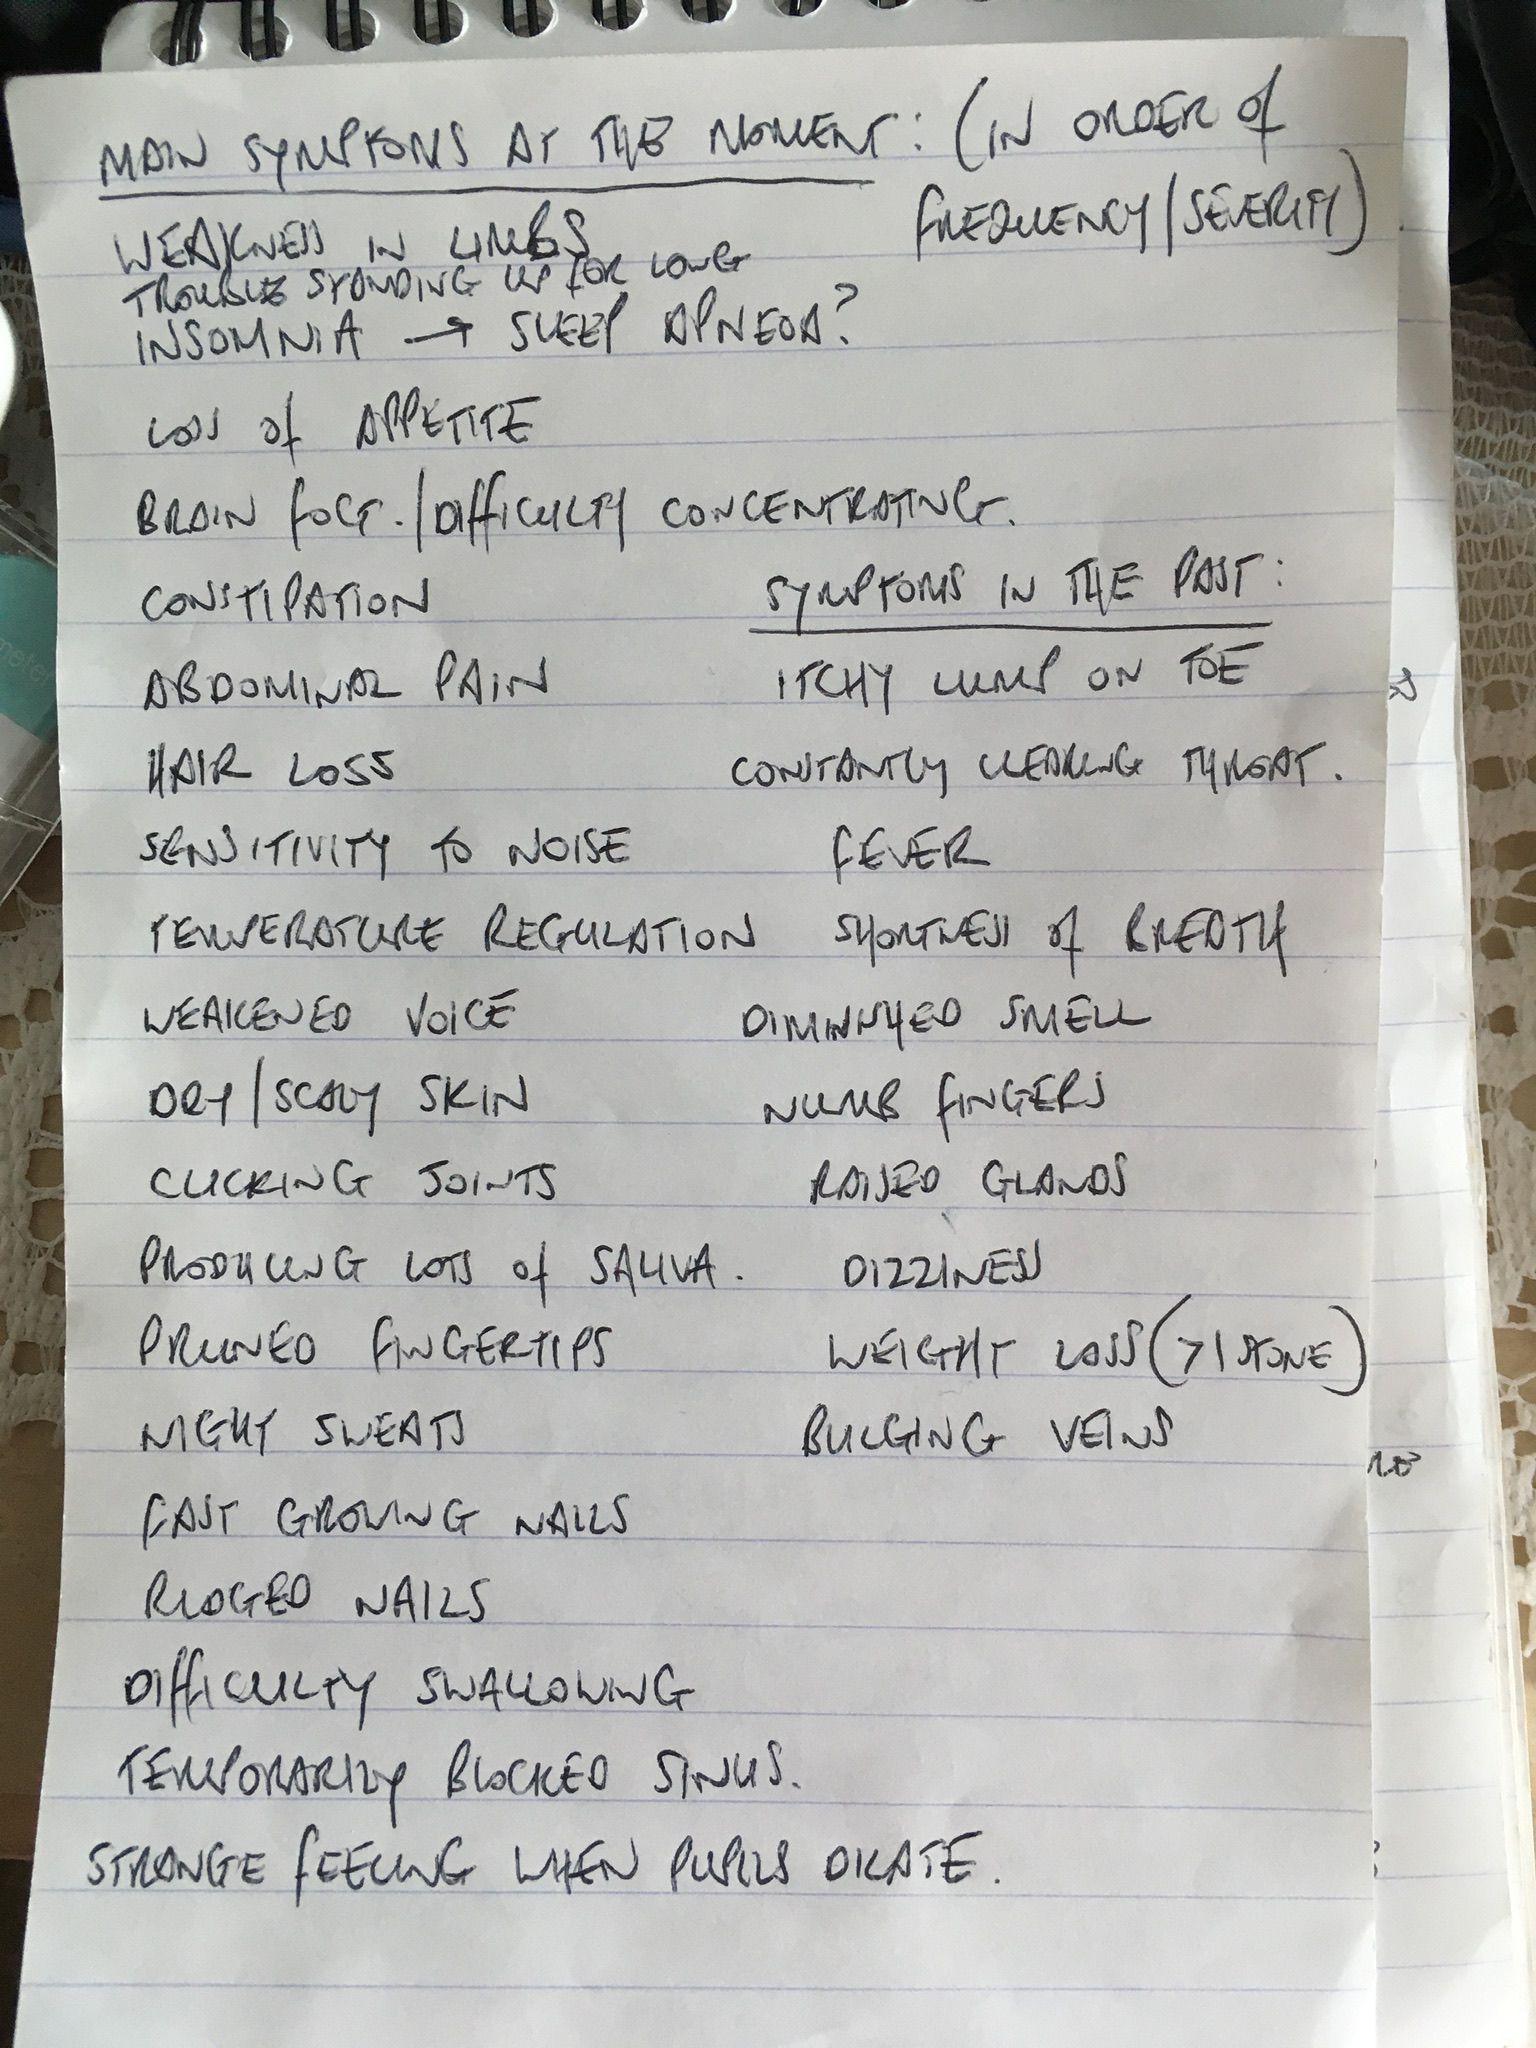 MAIN SYMPTOMS AT THE MOMENT: (IN ORDER OF
FREQUENCY/SEVERITY)
WEAKNESS IN LIMBS
TROUBLE STANDING UP FOR LONG
INSOMNIA → SLEEP APNEOA?
LOSS OF APPETITE
BRAIN FOG./DIFFICULTY CONCENTRATING.
CONSTIPATION
ABDOMINAL PAIN
HAIR LOSS
SENSITIVITY TO NOISE
TEMPERATURE REGULATION
WEAKENED VOICE
DRY/SCALY SKIN
CLICKING JOINTS
PRODUCING LOTS OF SALIVA.
PRUNED FINGERTIPS
NIGHT SWEATS
FAST GROWING NAILS
RIDGED NAILS
DIFFICULTY SWALLOWING
TEMPORARILY BLOCKED SINUS.
STRANGE FEELING WHEN PUPILS DILATE.
SYMPTOMS IN THE PAST:
ITCHY LUMP ON TOE
CONSTANTLY CLEARING THROAT.
FEVER
SHORTNESS OF BREATH
DIMINISHED SMELL
NUMB FINGERS
RAISED GLANDS
DIZZINESS
WEIGHT LOSS (>1 STONE)
BULGING VEINS